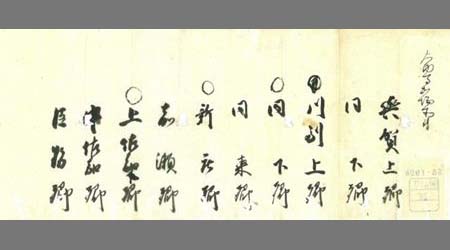 與賀上郷
同下郷
川副上郷
〇同下郷
同東郷
〇新庄郷
嘉瀬郷
〇上佐嘉郷
中佐嘉郷
巨勢郷